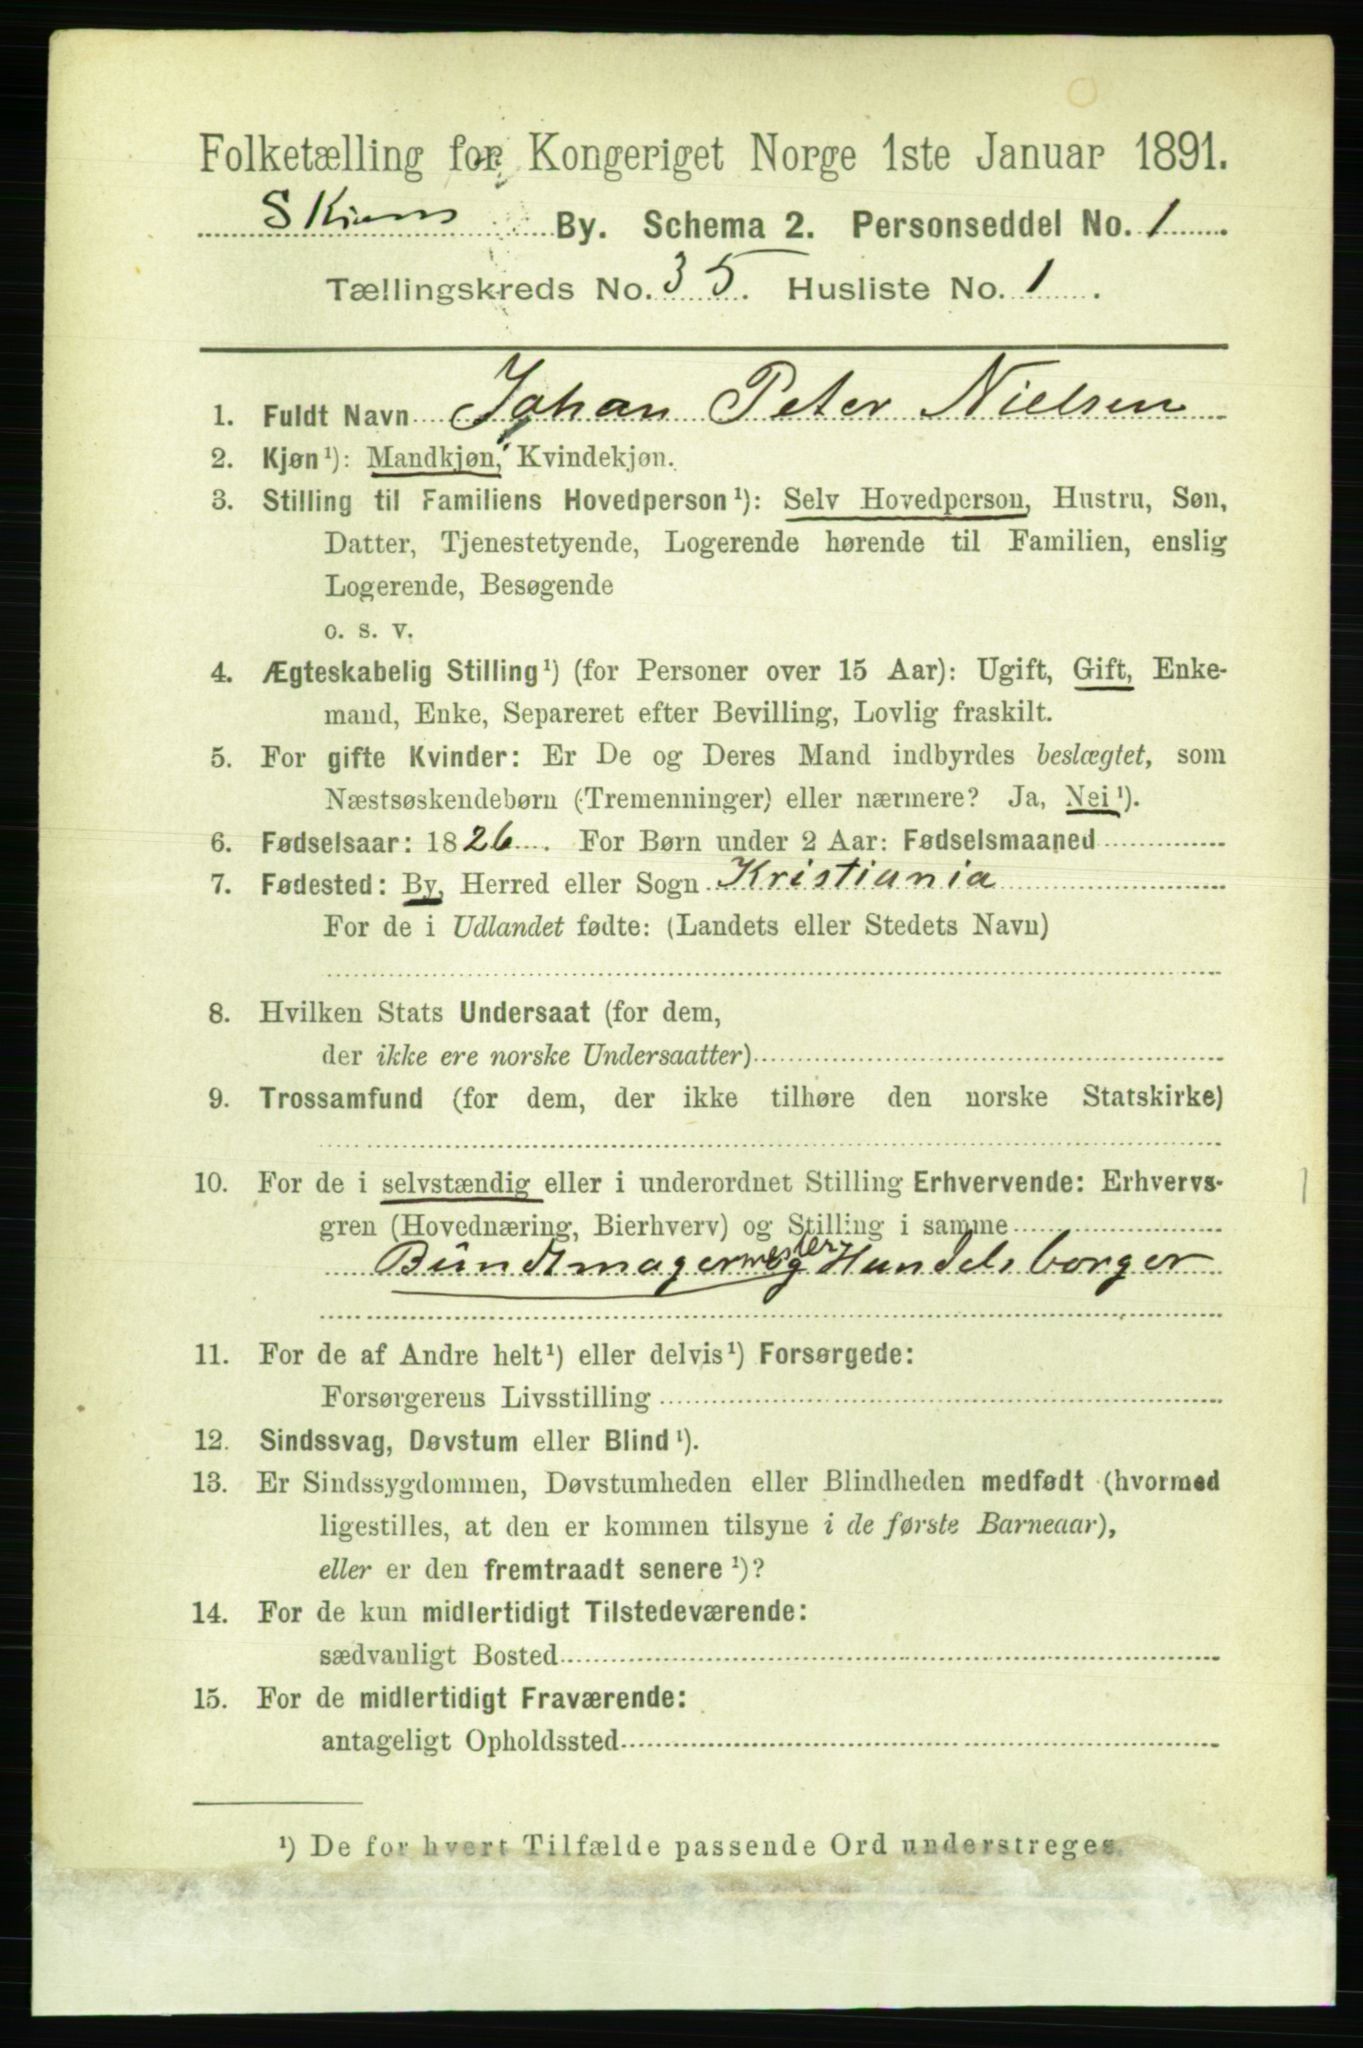 Folketælling for Kongeriget Norge 1ste Januar 1891.
Skiens By. Schema 2. Personseddel No. 1
Tællingskreds No. 35. Husliste No. 1.
1. Fuldt Navn Johan Peter Nielsen
2. Kjøn¹): Mandkjøn, Kvindekjøn.
3. Stilling til Familiens Hovedperson¹): Selv Hovedperson, Hustru, Søn,
Datter, Tjenestetyende, Logerende hørende til Familien, enslig
Logerende, Besøgende
o. s. v.
4. Ægteskabelig Stilling¹) (for Personer over 15 Aar): Ugift, Gift, Enke-
mand, Enke, Separeret efter Bevilling, Lovlig fraskilt.
5. For gifte Kvinder: Er De og Deres Mand indbyrdes beslægtet, som
Næstsøskendebørn (Tremenninger) eller nærmere? Ja, Nei¹).
6. Fødselsaar: 1826. For Børn under 2 Aar: Fødselsmaaned
7. Fødested: By, Herred eller Sogn Kristiania
For de i Udlandet fødte: (Landets eller Stedets Navn)
8. Hvilken Stats Undersaat (for dem,
der ikke ere norske Undersaatter)
9. Trossamfund (for dem, der ikke tilhøre den norske Statskirke)
10. For de i selvstændig eller i underordnet Stilling Erhvervende: Erhvervs-
gren (Hovednæring, Bierhverv) og Stilling i samme
Buntmagermester og Handelsborger
11. For de af Andre helt¹) eller delvis¹) Forsørgede:
Forsørgerens Livsstilling
12. Sindssvag, Døvstum eller Blind¹).
13. Er Sindssygdommen, Døvstumheden eller Blindheden medfødt (hvormed
ligestilles, at den er kommen tilsyne i de første Barneaar),
eller er den fremtraadt senere¹)?
14. For de kun midlertidigt Tilstedeværende:
sædvanligt Bosted
15. For de midlertidigt Fraværende:
antageligt Opholdssted
¹) De for hvert Tilfælde passende Ord understreges.